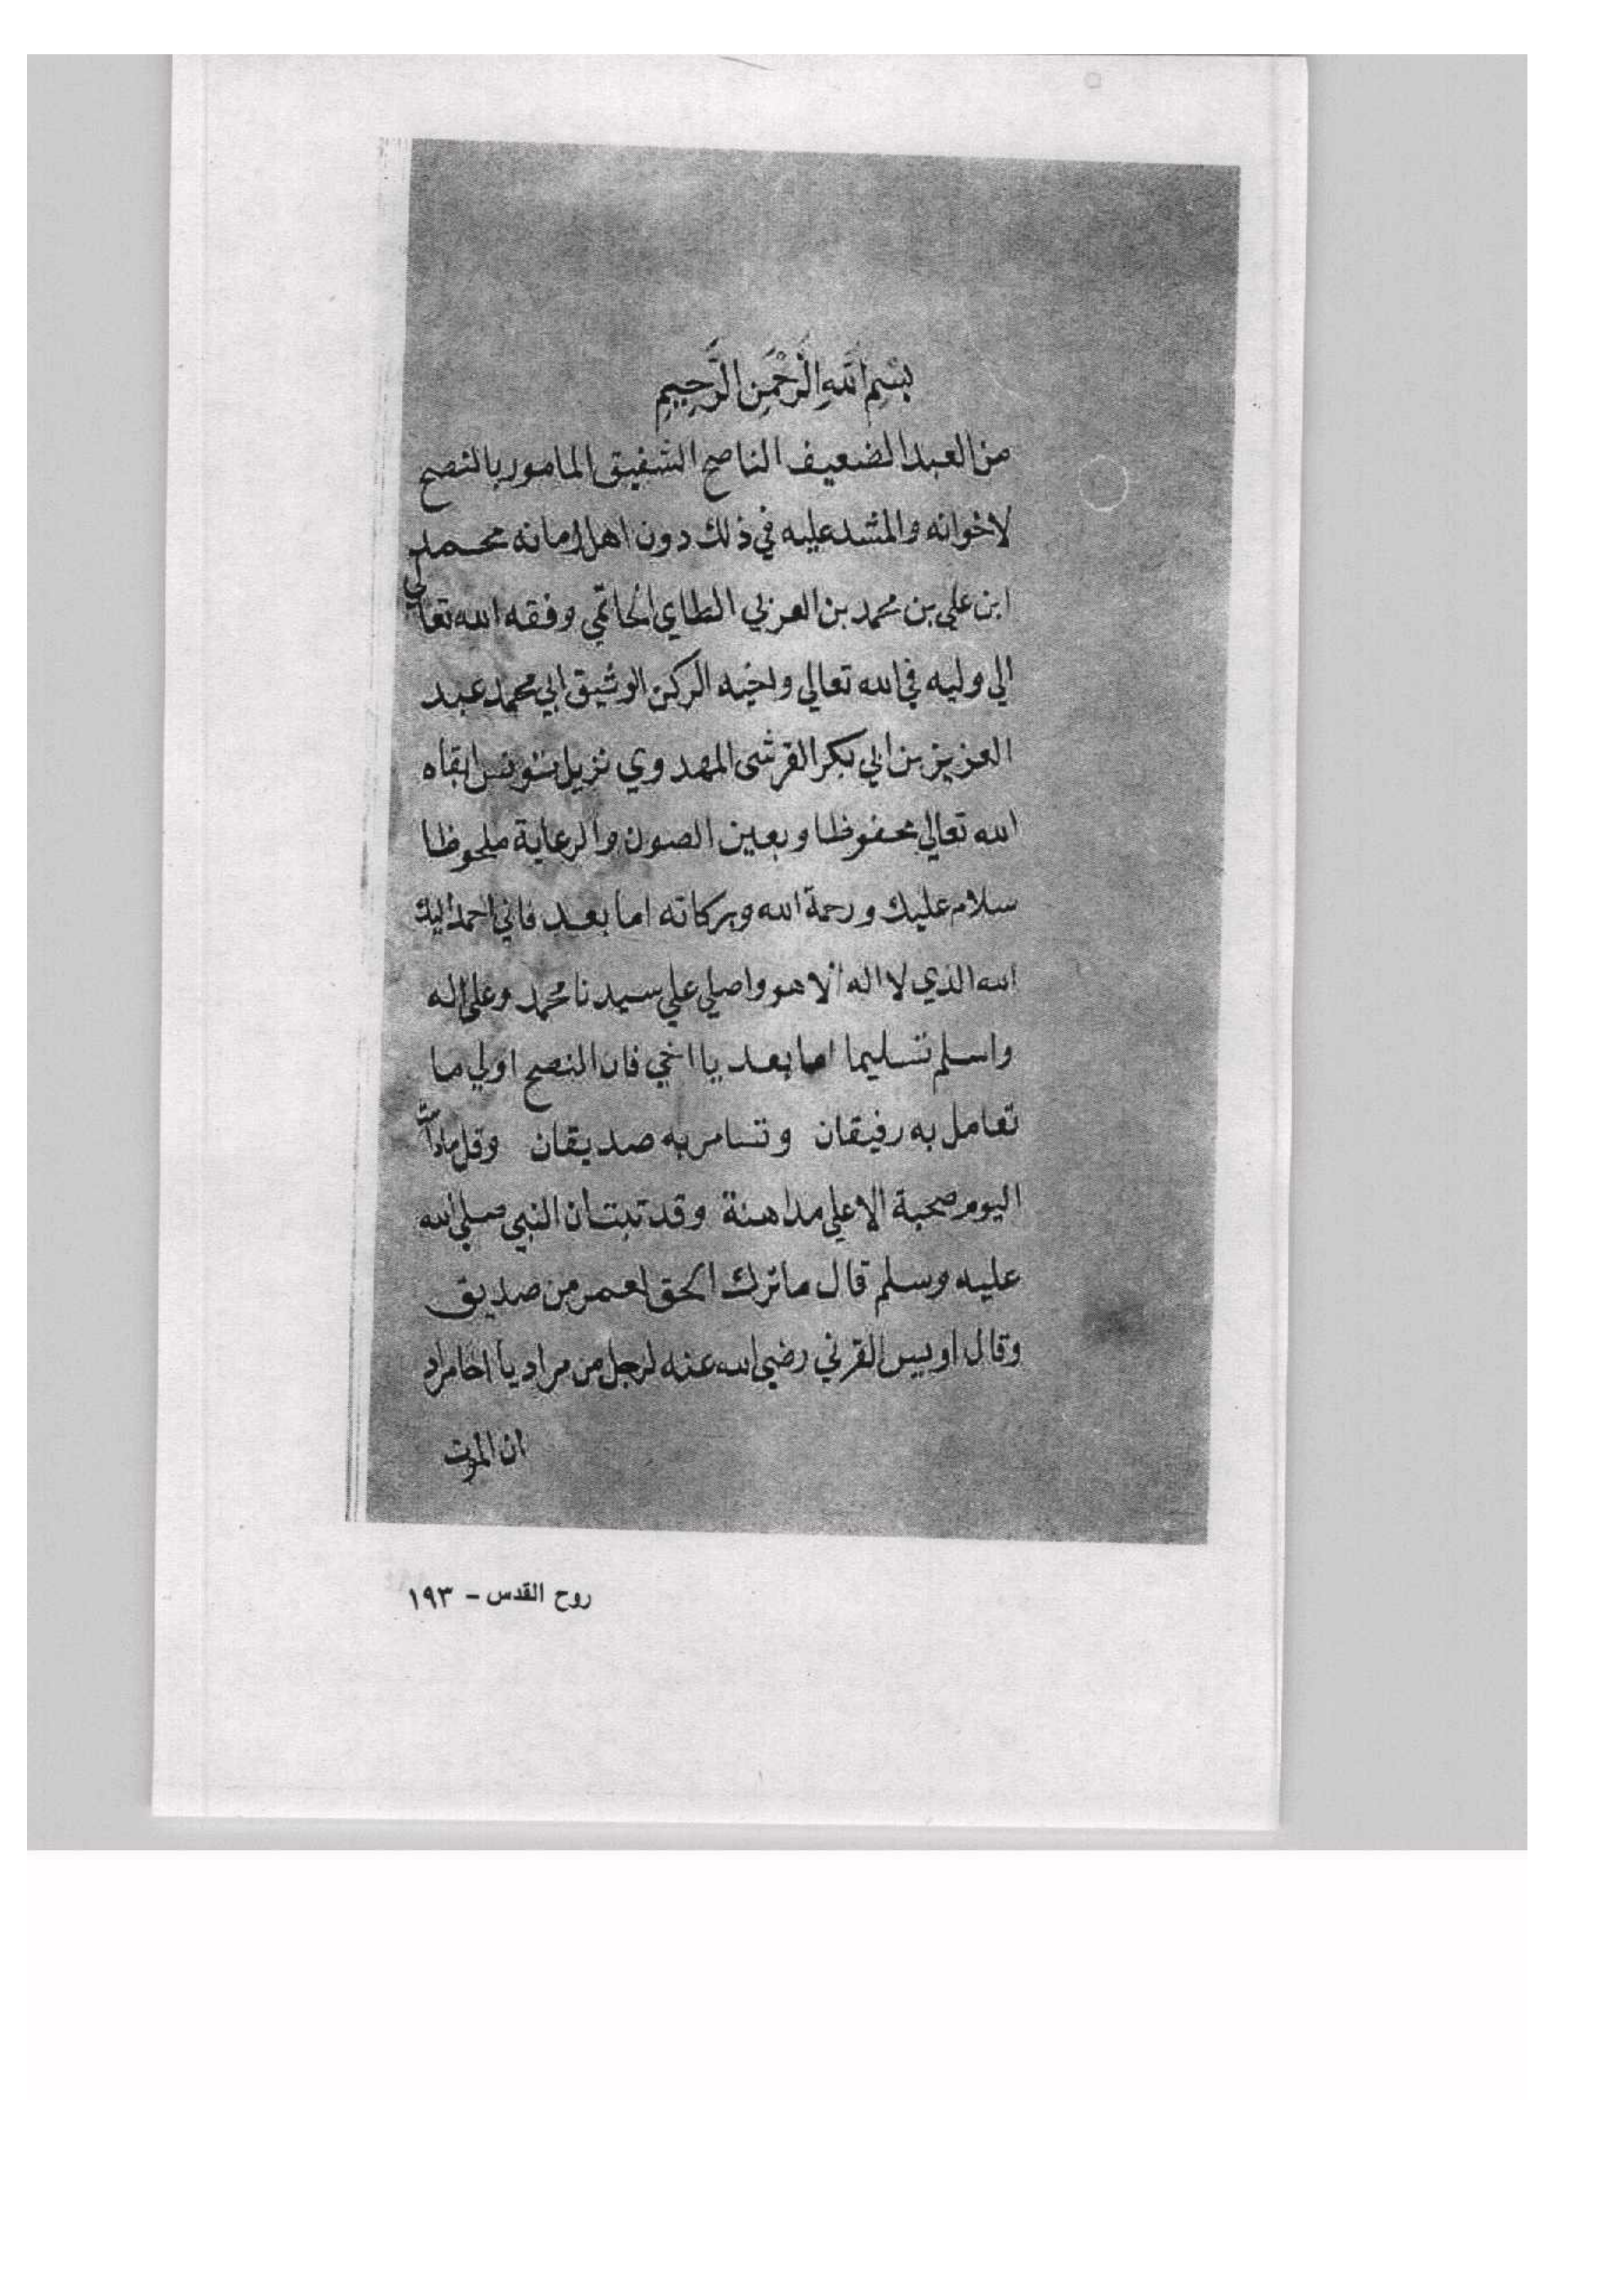 بِسْمِ اللهِ الرَّحْمَنِ الرَّحِيمِ
من العبد الضعيف الناصح الشفيق المامور بالنصح
لاخوانه والمشدد عليه في ذلك دون اهل زمانه محمد
ابن علي بن محمد بن العربي الطاي الحاتمي وفقه الله تعالي
الي وليه في الله تعالي واخيه الركن الوثيق ابي محمد عبد
العزيز بن ابي بكر القرشي المهدوي نزيل تونس ابقاه
الله تعالي محفوظا وبعين الصون والرعاية ملحوظا
سلام عليك ورحمة الله وبركاته اما بعد فاني احمد اليك
الله الذي لا اله الا هو واصلي علي سيدنا محمد وعلي اله
واسلم تسليما اما بعد يا اخي فان النصح اولي ما
تعامل به رفيقان وتسامر به صديقان وقل ما دامت
اليوم صحبة الا علي مداهنة وقد ثبت ان النبي صلي الله
عليه وسلم قال ما ترك الحق لعمر من صديق
وقال اويس القرني رضي الله عنه لرجل من مراد يا اخا مراد
ان الموت
روح القدس - ١٩٣